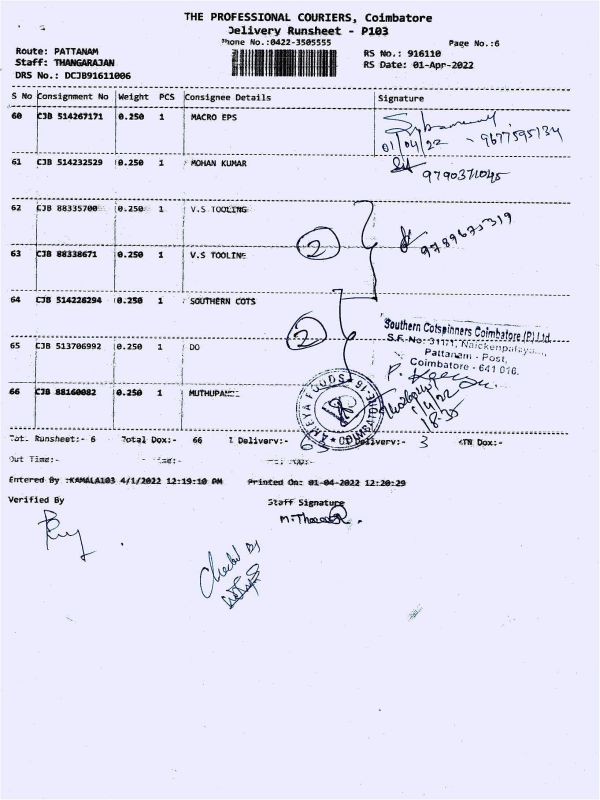 THE PROFESSIONAL COURIERS, Coimbatore
Delivery Runsheet - P103
Phone No.:0422-3505555
Page No.:6
Route: PATTANAM
RS No.: 916110
Staff: THANGARAJAN
RS Date: 01-Apr-2022
DRS No.: DCJB91611006
S No Consignment No Weight PCS Consignee Details Signature
60 CJB 514267171 0.250 1 MACRO EPS
01/04/22 - 9677595134
61 CJB 514232529 0.250 1 MOHAN KUMAR
9790371045
62 CJB 88335700 0.250 1 V.S TOOLING
2 9789675319
63 CJB 88338671 0.250 1 V.S TOOLING
64 CJB 514226294 0.250 1 SOUTHERN COTS
2
Southern Cotspinners Coimbatore (P) Ltd.
S.F. No: 311/1, Naickenpalaya
Pattanam - Post,
Coimbatore - 641 016.
65 CJB 513706992 0.250 1 DO
AMEYA FOODS COIMBATORE-16
66 CJB 88160082 0.250 1 MUTHUPAN
1/4/22
18-35
Tot. Runsheet:- 6 Total Dox:- 66 Delivery:- 63 Delivery:- 3 Dox:-
Out Time:-
Entered By :KAMALA103 4/1/2022 12:19:10 PM Printed On: 01-04-2022 12:20:29
Verified By Staff Signature
Checked By